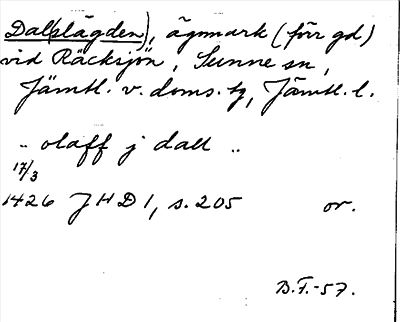 Dal(slägden), ägomark (förr gd)
vid Räcksjön, Sunne sn,
Jämtl. v. doms. tg, Jämtl. l.
.. olaff j dall ..
17/3
1426 JHD 1, s. 205 or.
B.F.-57.